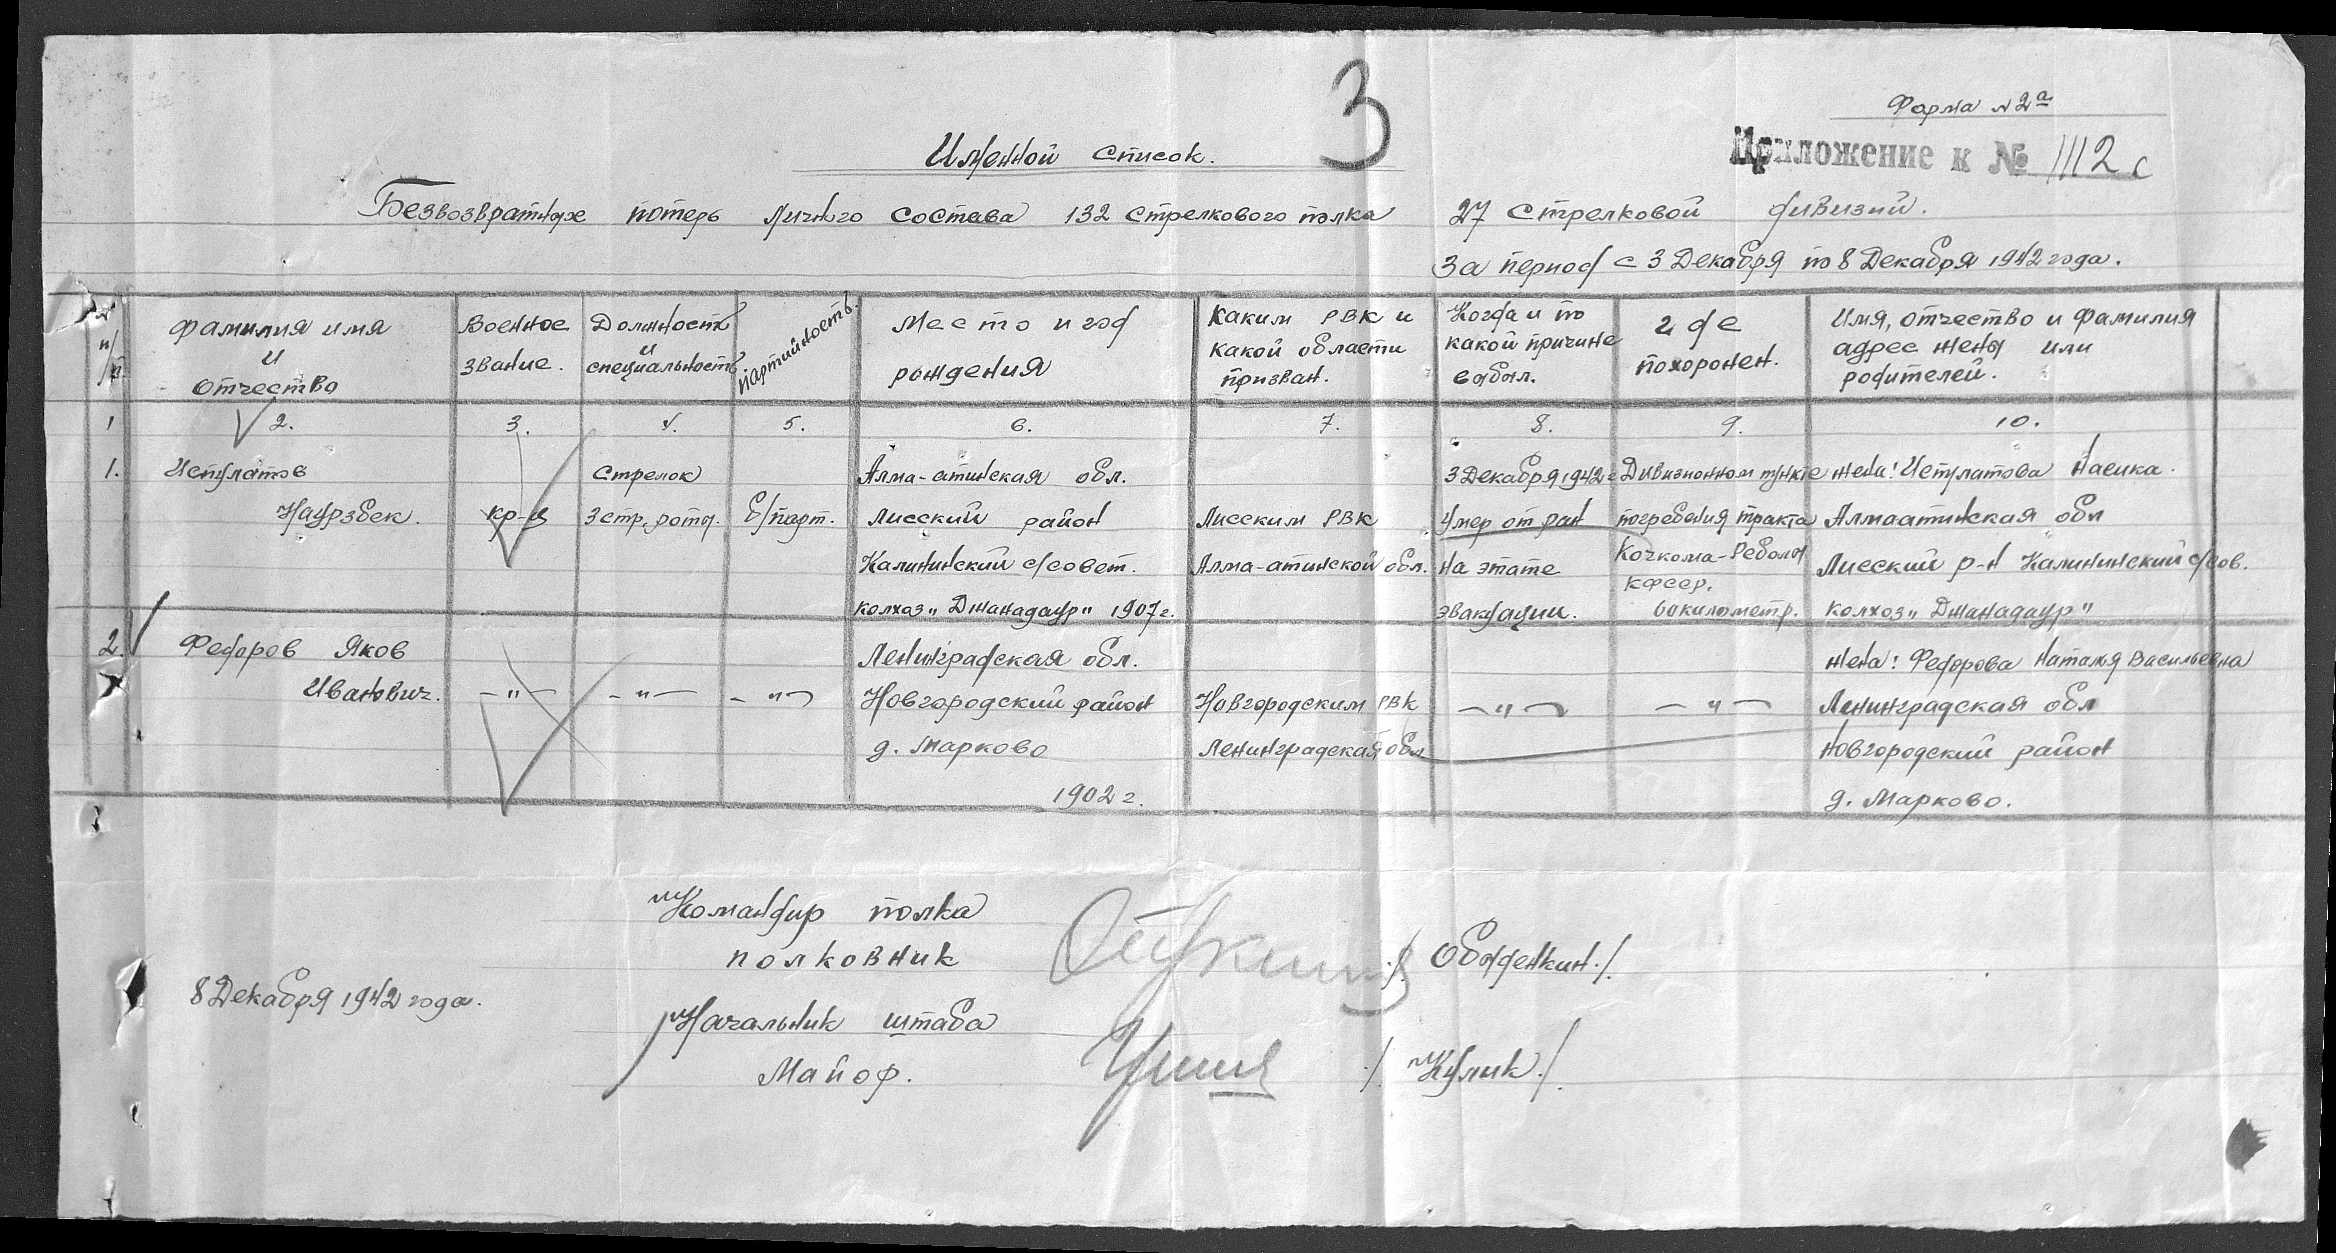 3
Форма № 2а
Приложение к № 1112 с
Именной список.
Безвозвратных потерь личного состава 132 стрелкового полка 27 стрелковой дивизий.
За период с 3 Декабря по 8 Декабря 1942 года.
п/п
Фамилия имя
и
отчество
Военное
звание.
Должность
и
специальность
партийность.
Место и год
рождения
Каким РВК и
какой области
призван.
Когда и по
какой причине
выбыл.
где
похоронен.
Имя, отчество и фамилия
адрес жены или
родителей.
1 2. 3. 4. 5. 6. 7. 8. 9. 10.
1.
Испулатов
Наурзбек.
кр-ц
Стрелок
3 стр. роты.
б/парт.
Алма-атинская обл.
Лисский район
Калининский с/совет.
колхоз „Джанадаур" 1907 г.
Лисским РВК
Алма-атинской обл.
3 Декабря 1942 г
умер от ран
на этапе
эвакуации.
Дивизионном пункте
погребения тракта
Кочкома-Реболы
КФССР.
60 километр.
жена: Испулатова Насика.
Алмаатинская обл
Лисский р-н Калининский с/сов.
колхоз „Джанадаур"
2.
Федоров Яков
Иванович.
—"—
—"—
—"—
Ленинградская обл.
Новгородский район
д. Марково
1902 г.
Новгородским РВК
Ленинградская обл
—"—
—"—
жена: Федорова Наталья Васильевна
Ленинградская обл
Новгородский район
д. Марково.
Командир полка
полковник
/. Обыденкин ./.
8 Декабря 1942 года.
Начальник штаба
Майор.
/. Кулик ./.